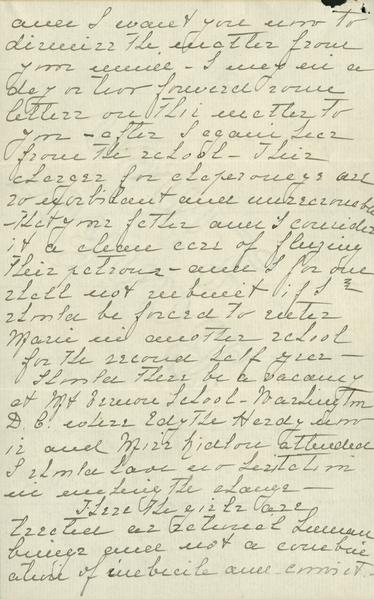 and I want you now to
dismiss the matter from
your mind - I may in a
day or two forward some
letters on this matter to
you - after I again hear
from the school - Their
charges for chaperonage are
so exorbitant and unreasonable
- that your father and I consider
it a clear case of fleecing
their patrons - and I for one
shall not submit if I
should be forced to enter
Marie in another school
for the second half year -
Should there be a vacancy
at Mt Vernon School - Washington
D. C. where Edythe Hardy now
is and Miss attended
I should have no hesitation
in making the change -
There the girls are
treated as rational human
beings and not a combin
ation of imbecile and convict -